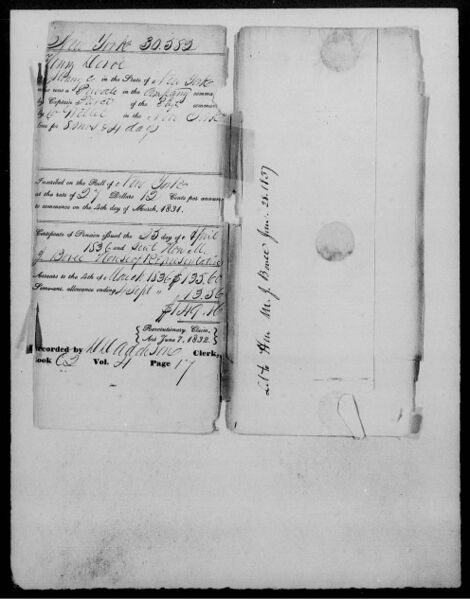 New York 30,582
Henry Devoe
Albany Co in the State of New York
who was a Private in the Company comman
by Captain of the Regt comman
by Col Willet in the New York
line for 8 mos & 4 days
Inscribed on the Roll of New York
at the rate of 27 Dollars 12 Cents per annum
to commence on the 4th day of March, 1831.
Certificate of Pension issued the 25 day of April
1836 and sent Hon M.
J. Bovee House of Representatives
Arrears to the 4th of March 1836 $135.60
Semi-ann. allowance ending 4 Sept " 13.56
$149.16
Revolutionary Claim,
Act June 7, 1832.
ecorded by Clerk,
ook E 2 Vol. 4 Page 17
Let to Hon. M. J. Bovee Jan. 1837